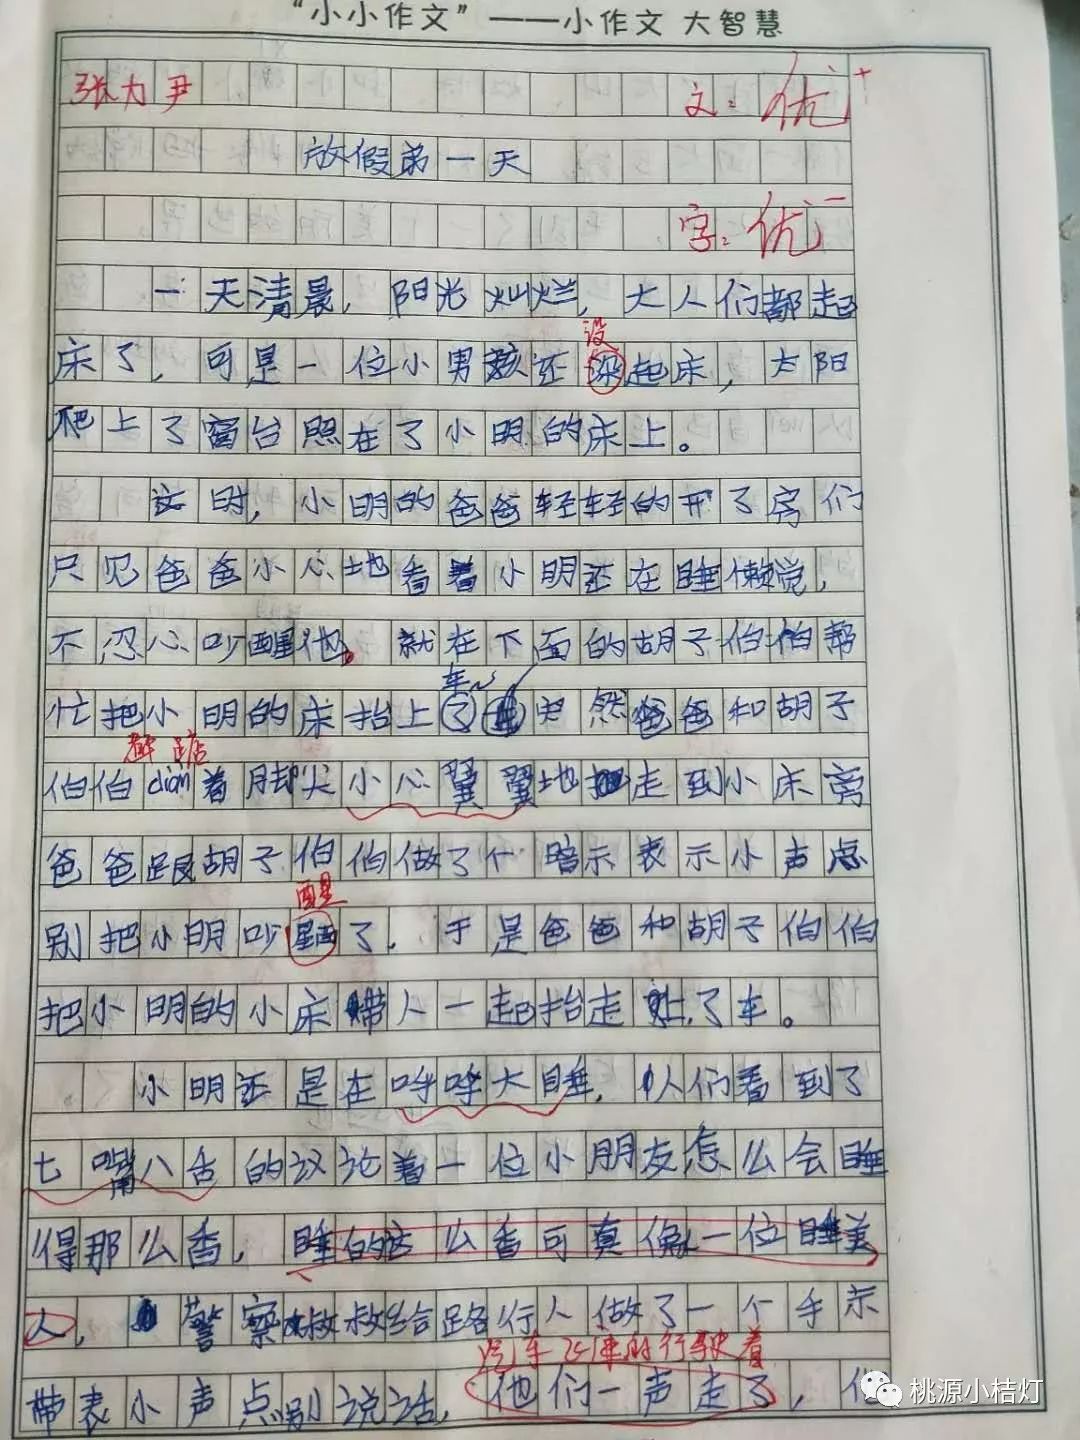 “小小作文”——小作文 大智慧
张力尹 文：优+
放假弟一天
字：优-
一天清晨，阳光灿烂，大人们都起
没
床了，可是一位小男孩还起床，太阳
爬上了窗台照在了小明的床上。
这时，小明的爸爸轻轻的开了房们
只见爸爸小心地看着小明还在睡懒觉，
不忍心吵醒他。就在下面的胡子伯伯帮
车
忙把小明的床抬上了尹然爸爸和胡子
踮
伯伯diǎn着脚尖小心翼翼地走到小床旁
爸爸跟胡子伯伯做了个暗示表示小声点
醒
别把小明吵了，于是爸爸和胡子伯伯
把小明的小床带人一起抬走上了车。
小明还是在呼呼大睡，人们看到了
七嘴八舌的议论着一位小朋友怎么会睡
得那么香，睡的这么香可真像一位睡美
人，警察叔叔给路行人做了一个手示
汽车飞速的行驶着
带表小声点别说话，他们一声走了，但
桃源小桔灯